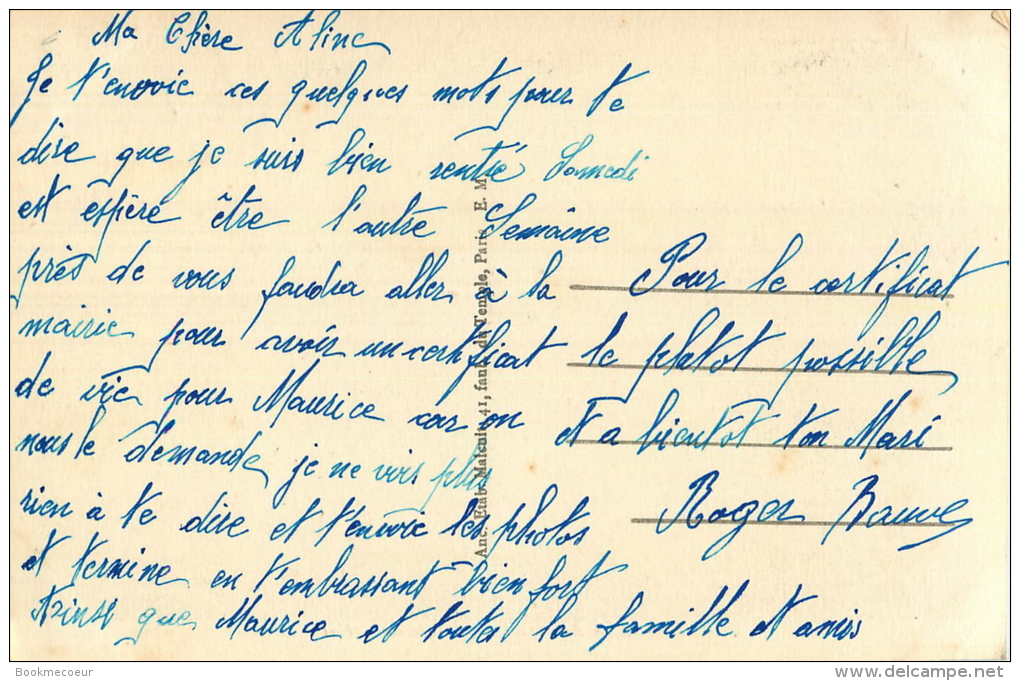 Ma Chère Aline
Je t'envoie ces quelques mots pour te
dire que je suis bien rentré Samedi
est espère être l'autre Semaine
près de vous faudra aller à la
mairie pour avoir un certificat
de vie pour Maurice car on
nous le demande je ne vois plus
rien à te dire et t'envoie les photos
et termine en t'embrassant bien fort
Ainsi que Maurice et toute la famille et amis
Pour le certificat
le platot possible
et a bientôt ton Mari
Roger
Anc. Etab. Malcuit, 41, faub. du Temple, Paris. E. M.
Bookmecoeur
www.delcampe.net